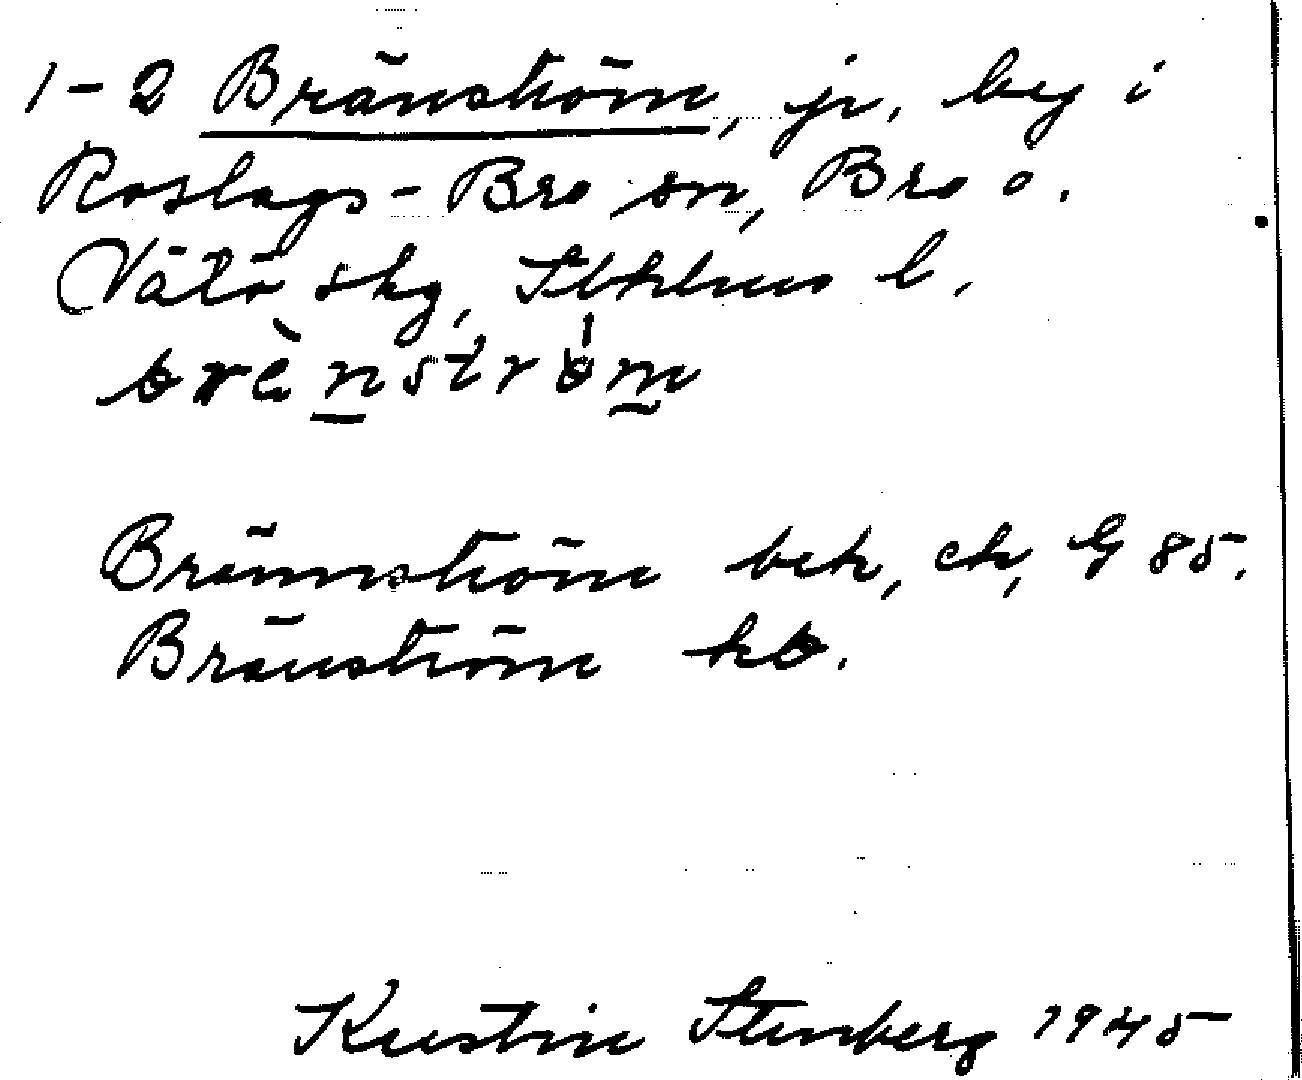 1-2 Bränström, jr, by i
Roslags-Bro sn, Bro o.
Vätö skg, Sthlms l.
brènström
Brännström bek, ek, G 85.
Bränström kb.
Kerstin Stenberg 1945